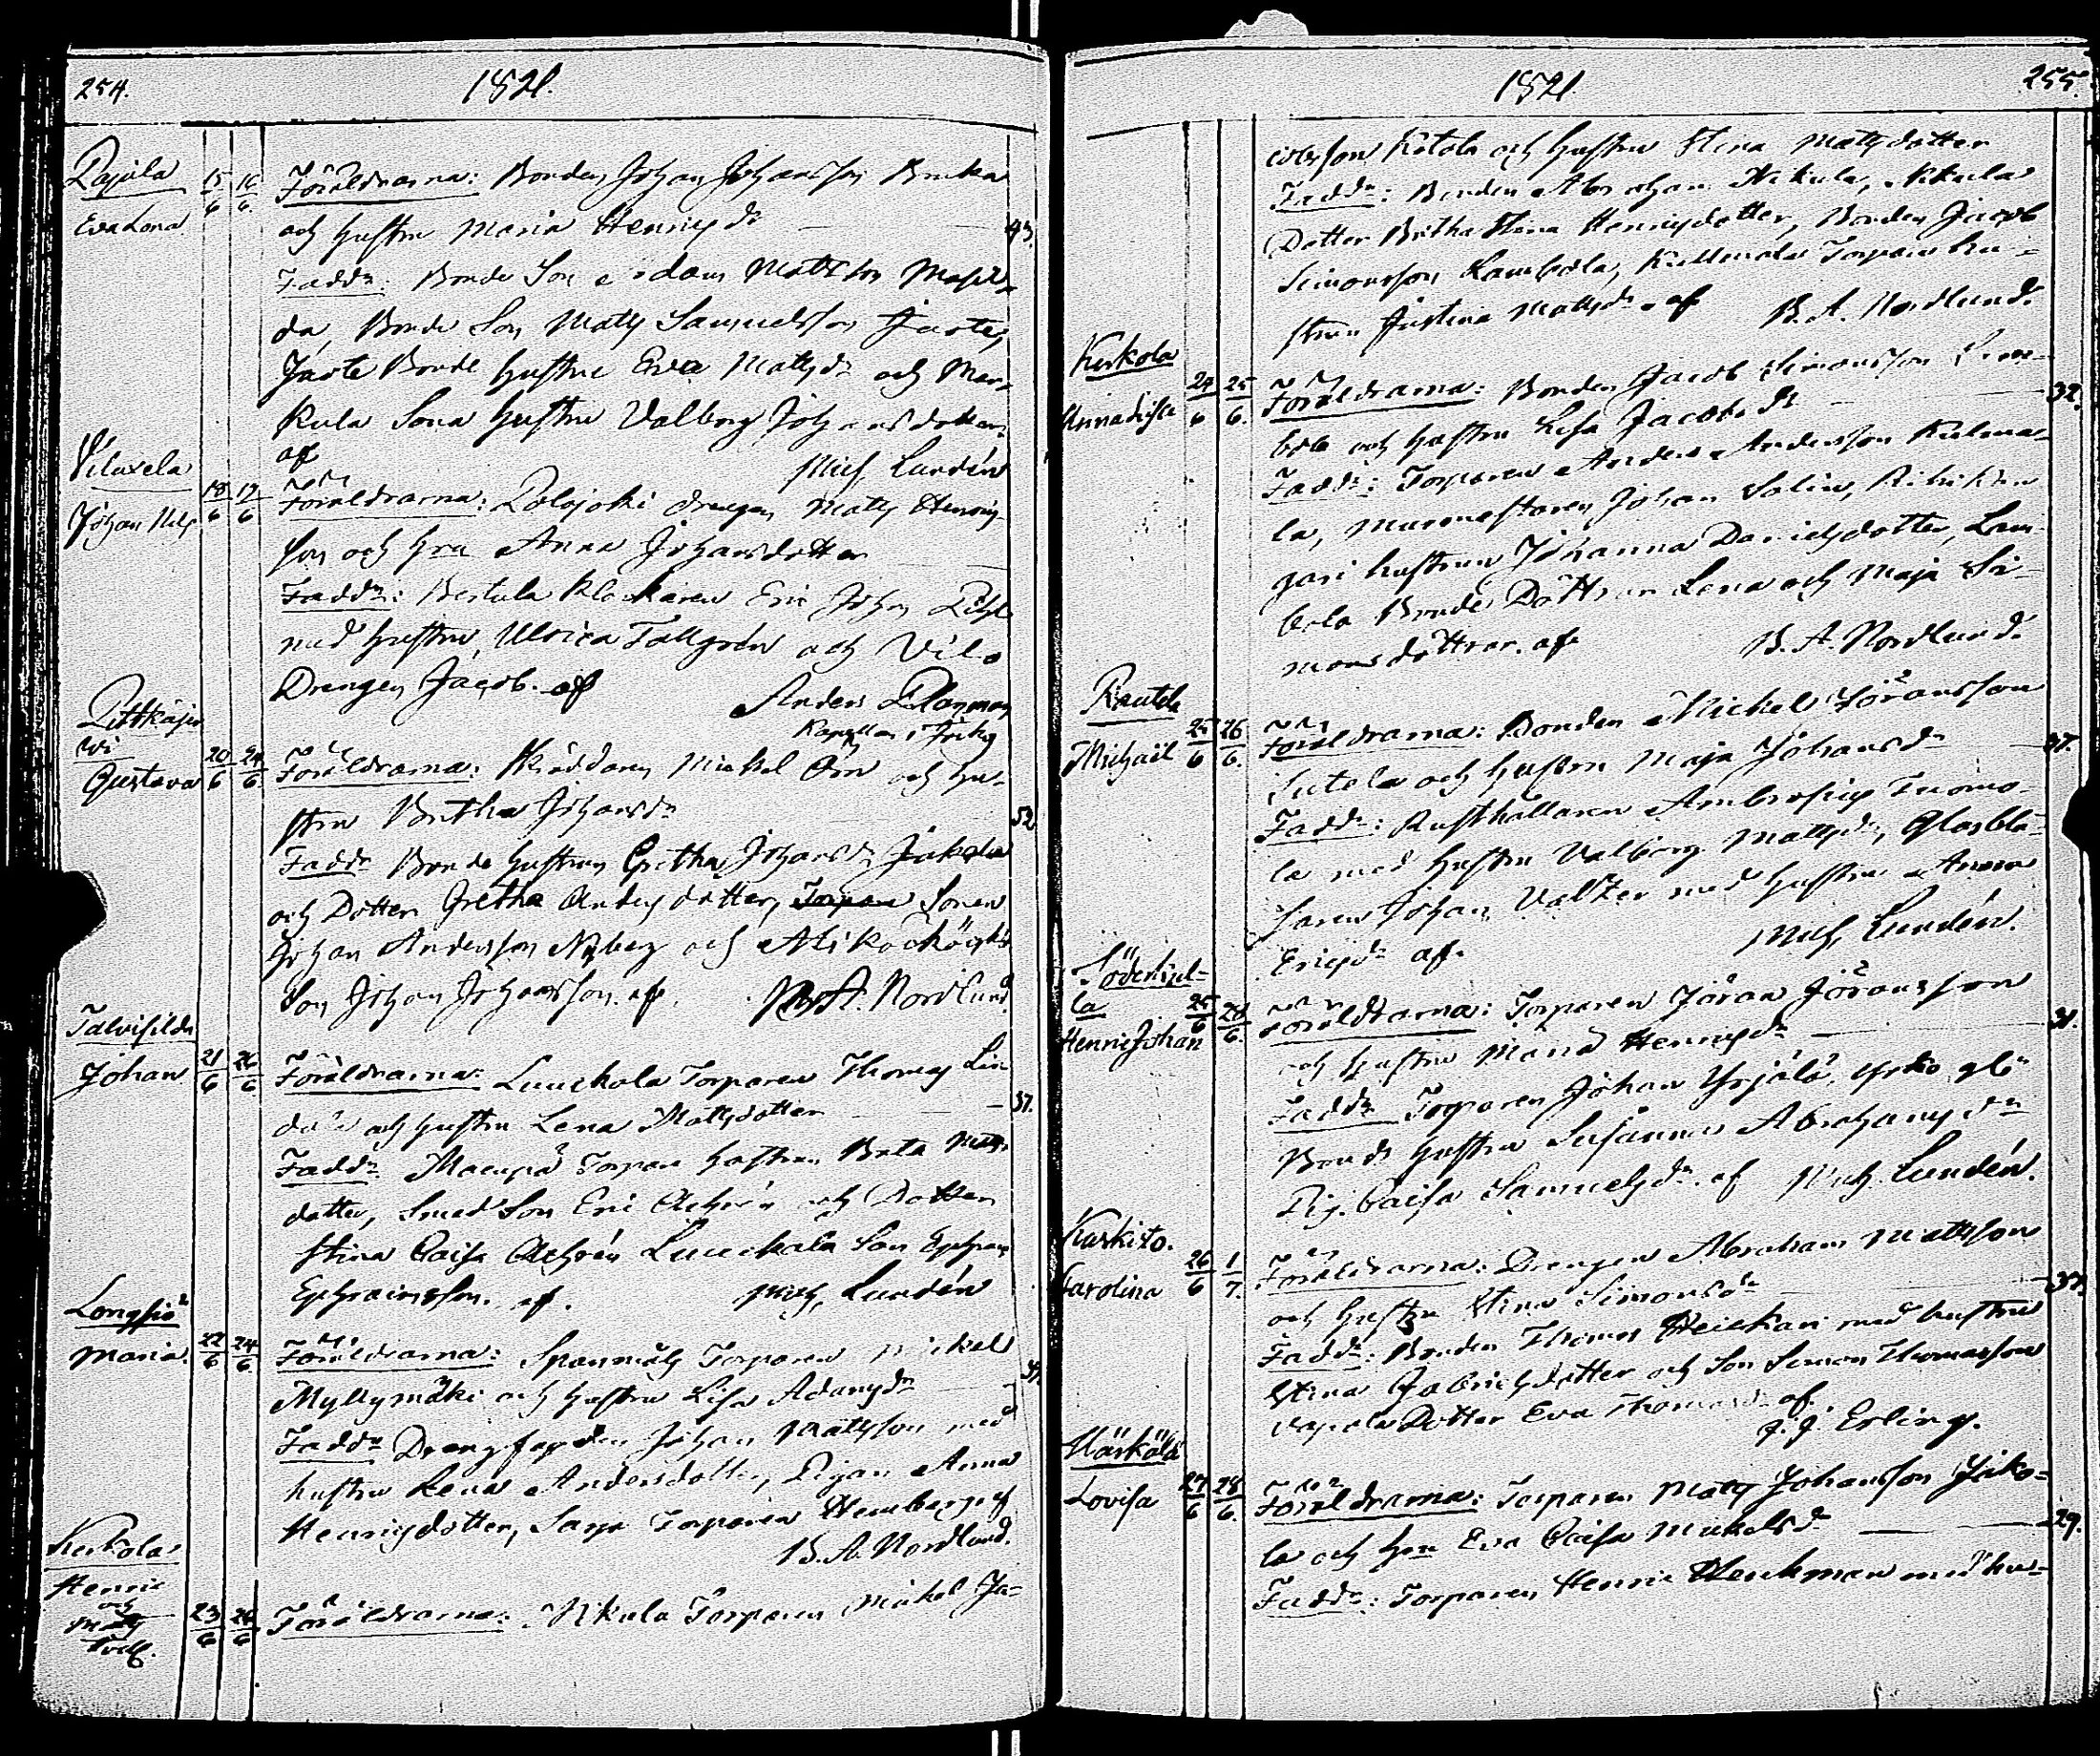 254.
1821.
Rajala
Eva Lena
15/6 16/6
Föräldrarna: Bonden Johan Johansson
och hustru Maria Henrigsdr
43.
Faddr: Bonde Son Adam Mattsson
da, Bonde Son Matts Samuelsson
Bonde hustru Eva Mattsdr och
kula Sona hustru Valborg Johansdotter
af Mich Lundén
Johan Nils
18/6 19/6
Föräldrarna: Drengen Matts Henrics
son och hru Anna Johansdotter
Faddr: Bertula Klockaren Eric Johan
med hustru, Ulrica Tallgrén och Vilo
Drengen Jacob. af Anders
Gustava
20/6 24/6
Föräldrarna: Skräddaren Mickel Orn och hu-
stru Britha Johansdr
52
Faddr Bonde hustrun Gretha Johansdr Jakola
och Dotter Gretha Andersdotter, Sonen
Johan Andersson Nyberg och
Son Johan Johansson. af. B. A. Nordlund
Talvisilda
Johan
21/6 26/6
Föräldrarna: Luuckala Torparen Thomas Lin
da och hustru Lena Mattsdotter
37.
Faddr. Torpare hustrun Beata
dotter, Smed Son Eric Achrén och Dotter
Stina Caisa Achrén Luuckala Son Ephraim
Ephraimsson. af. Mich, Lundén
Longsjö
Maria.
22/6 24/6
Föräldrarna: Torparen Mickel
Myllymäki och hustru Lisa Adamsdr
Faddr Johan Mattsson med
hustru Lena Andersdotter, Pigan Anna
Henrigsdotter, Torparen Hemberg af
B. A. Nordlund.
Kerkola
Henric
och
Matts
tvill.
23/6 24/6
Föräldrarna: Nikula Torparen Mickel Ja-
1821.
255.
cobsson Ketola och hustru Stina Mattsdotter
Faddr: Bonden Abraham Nikula, Nikula
Dotter Britha Stina Henrigsdotter, Bonden Jacob
Simonsson Lambola, Torpare hu-
strun Justina Mattsdr. af B. A. Nordlund.
Kerkola
Anna Lisa
24/6 25/6
Föräldrarna: Bonden Jacob Simonsson Lam-
bola och hustru Lisa Jacobsdr
32.
Faddr: Torparen Anders Andersson
la, Murmestaren Johan Salin,
hustrun Johanna Danielsdotter, Lam-
bola Bonde Döttrar Lena och Maja Si-
monsdöttrar. af B. A. Nordlund.
Rautela
Michaël
25/6 26/6
Föräldrarna: Bonden Mickel Jöransson
Sutela och hustru Maja Johansdr
37.
Faddr: Rusthållaren Ambrosius Tuomo-
la med hustru Valborg Mattsdr, Glasblå-
saren Johan Valter med hustru Anna
Ericsdr af. Mich, Lundén.
Söderkul-
la
Henric Johan
25/6 28/6
Föräldrarna: Torparen Jöran Jöransson
och hustru Maria Henrigsdr
31.
Faddr Torparen Johan Yrjälä,
Bonde hustru Susanna Abrahamsdr
Pig. Caisa Samuelsdr. af Mich. Lundén.
Kurkisto.
Carolina
26/6 1/7.
Föräldrarna: Drengen Abraham Mattsson
och hustru Stina Simonsdr
37.
Faddr: Bonden Thomas Heickari med hustru
Stina Gabrielsdotter och Son Simon Thomasson
Dotter Eva Thomasdr. af.
J. J. Erling.
Härkälä
Lovisa
27/6 28/6.
Föräldrarna: Torparen Matts Johansson Jako-
la och hru Eva Caisa Mickelsdr
29.
Faddr: Torparen Henric Henkman med hu-